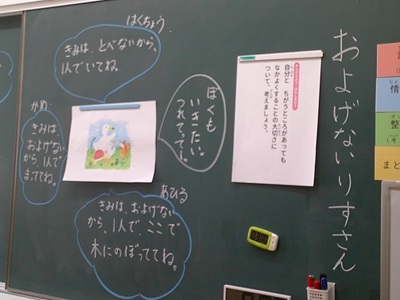 およげないりすさん
自分と ちがうところがあっても
なかよくすることの大切さに
ついて、考えましょう。
ぼくも
いきたい。
つれてって―。
はくちょう
きみは、とべないから、
1人でいてね。
かめ
きみは
およげない
から、1人で
まっててね。
あひる
きみは、およげない
から、1人で、ここで
木にのぼっててね。
情
整
まと